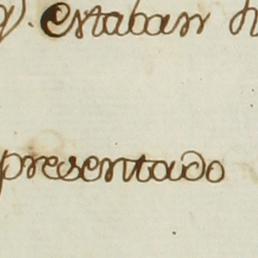 estaban
presentado